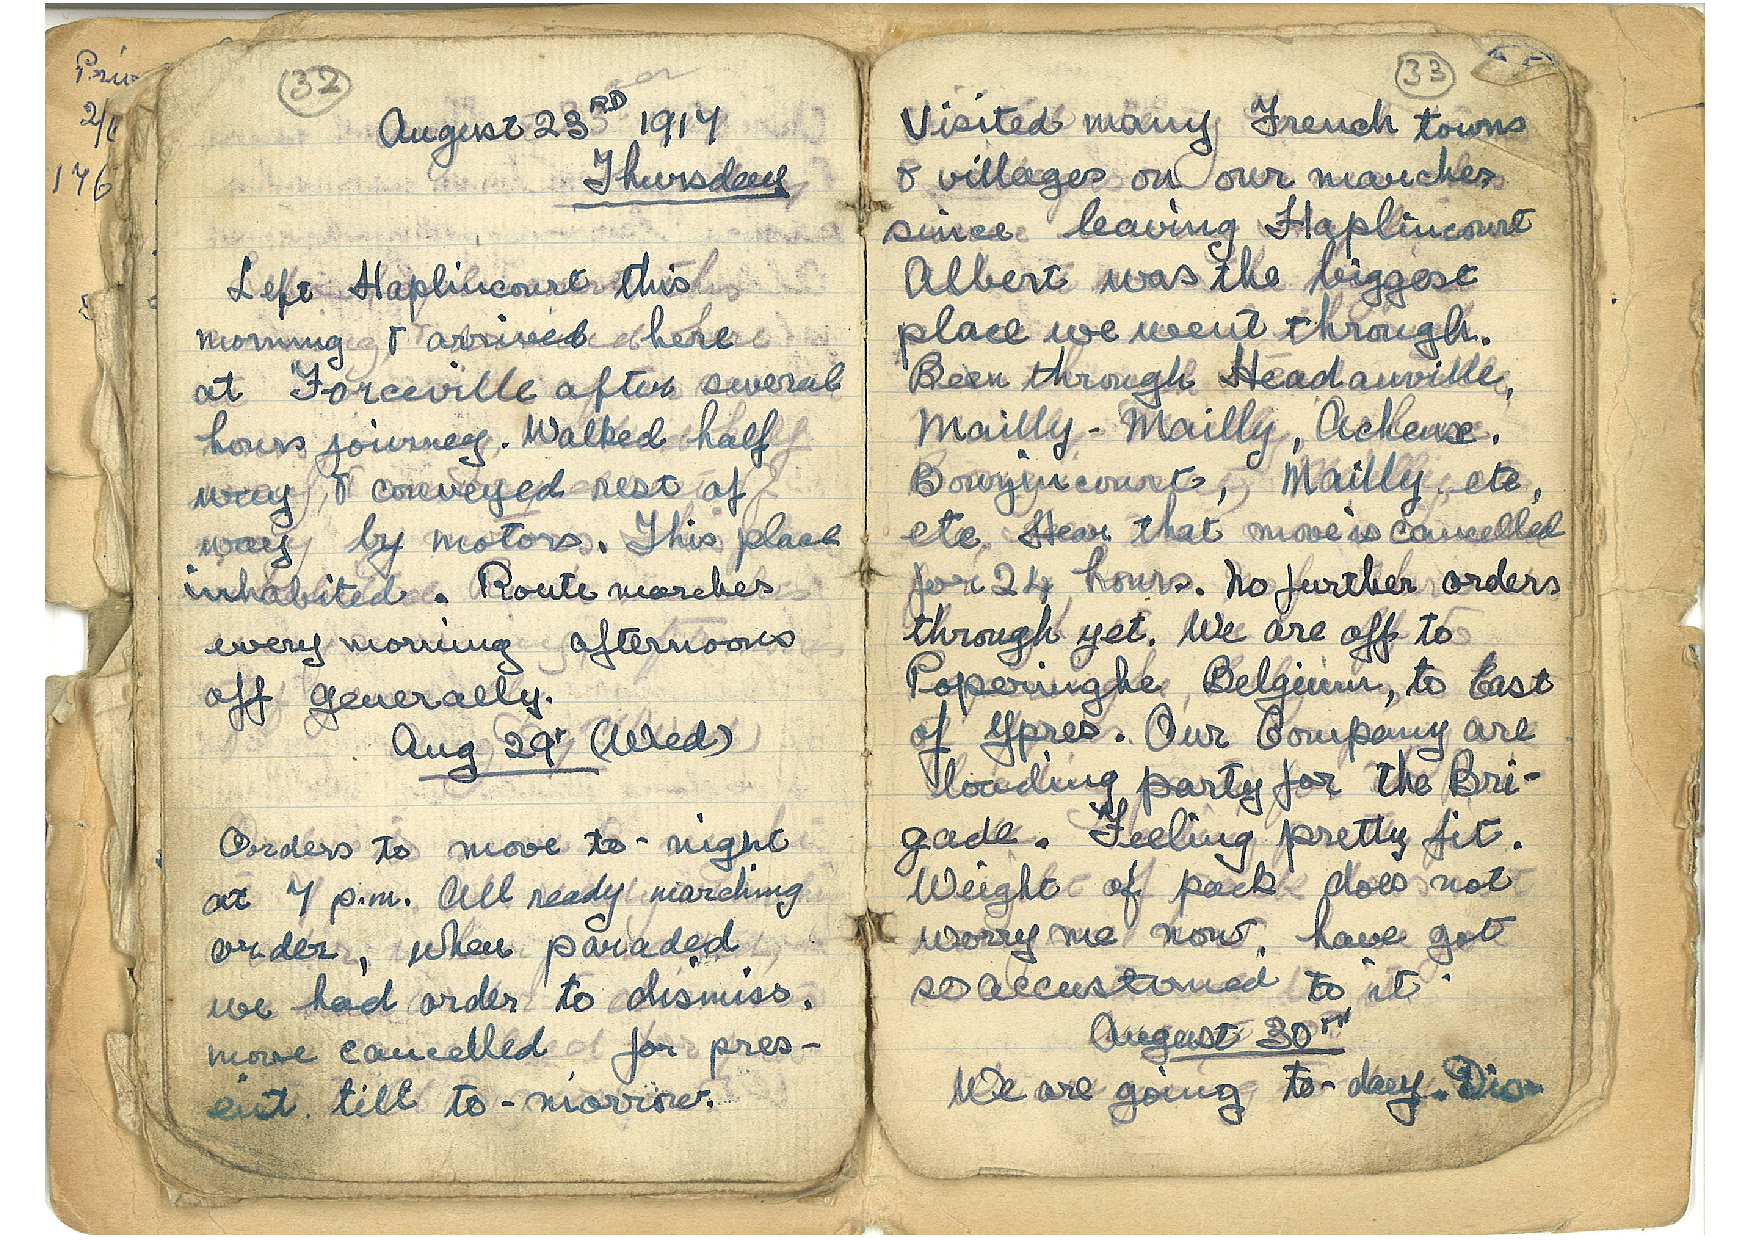 Priv
2/
176
32
August 23RD 1917
Thursday
Left Haplincourt this
morning & arrived here
at Forceville after several
hours journey. Walked half
way, & conveyed rest of
way by motors. This place
inhabited. Route marches
every morning afternoons
off generally.
Aug 29t (Wed)
Orders to move to-night
at 7 p.m. All ready marching
order, when paraded
we had order to dismiss.
move cancelled for pres-
ent till to-morrow.
33
Visited many French towns
& villages on our marches
since leaving Haplincourt
Albert was the biggest
place we went through.
Been through Headauville,
Mailly-Mailly, Acheux.
Mailly, etc,
etc. Hear that move is cancelled
for 24 hours. No further orders
through yet. We are off to
Poperinghe, Belgium, to East
of Ypres. Our Company are
loading party for the Bri-
gade. Feeling pretty fit.
Weight of pack does not
worry me now, have got
so accustomed to it.
August 30TH
We are going to-day.